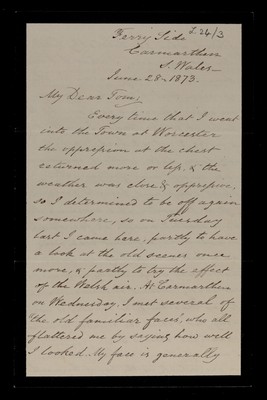 L 24/3
Ferry Side
Carmarthen
S. Wales
June 28. 1873.
My Dear Tom,
Every time that I went
into the Town at Worcester
the oppression at the chest
returned more or less, & the
weather was close & oppressive,
so I determined to be off again
somewhere, so on Tuesday
last I came here, partly to have
a look at the old scenes once
more, & partly to try the effect
of the Welsh air. At Carmarthen
on Wednesday, I met several of
the old familiar faces, who all
flattered me by saying how well
I looked. My face is generally